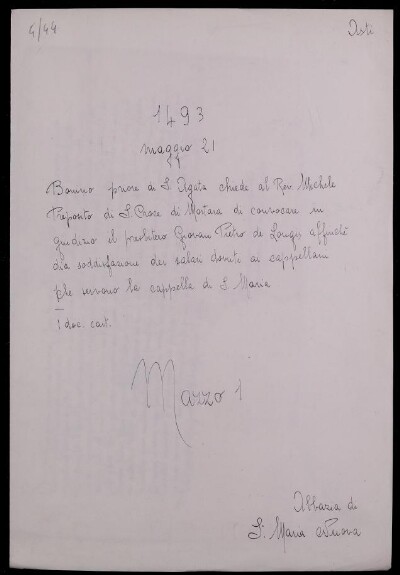 4/44
Asti
1493
maggio 21
Bonino priore di S. Agata chiede al Rev. Michele
Preposito di S. Croce di Mortara di convocare in
giudizio il presbitero Giovan Pietro de Longis affinché
dia soddisfazione dei salari dovuti ai cappellani
che servono la cappella di S. Maria
1 doc. cart.
Mazzo 1
Abbazia di
S. Maria Nuova